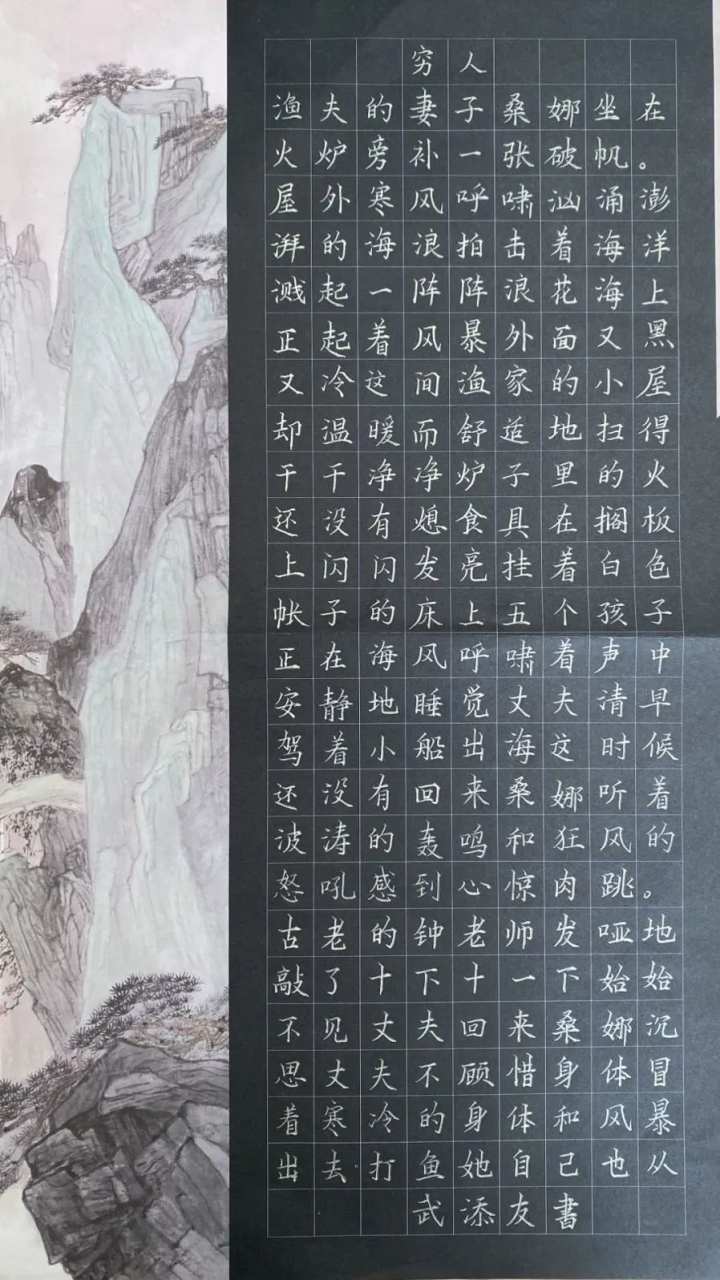 穷人
渔夫的妻子桑娜坐在
火炉旁补一张破帆。
屋外寒风呼啸汹涌澎
湃的海浪拍击着海洋
溅起一阵阵浪花海上
正起着风暴外面又黑
又冷这间渔家的小屋
却温暖而舒适地扫得
干干净净炉子里的火
还没有熄食具在搁板
上闪闪发亮挂着白色
帐子的床上五个孩子
正在海风呼啸着声中
安静地睡觉丈夫清早
驾着小船出海这时候
还没有回来桑娜听着
波涛的轰鸣和狂风的
怒吼感到心惊肉跳。
古老的钟老师发哑地
敲了十下十一下始始
不见丈夫回来桑娜沉
思丈夫不顾惜身体冒
着寒冷的身体和风暴
出去打鱼她自己也从
武添友書